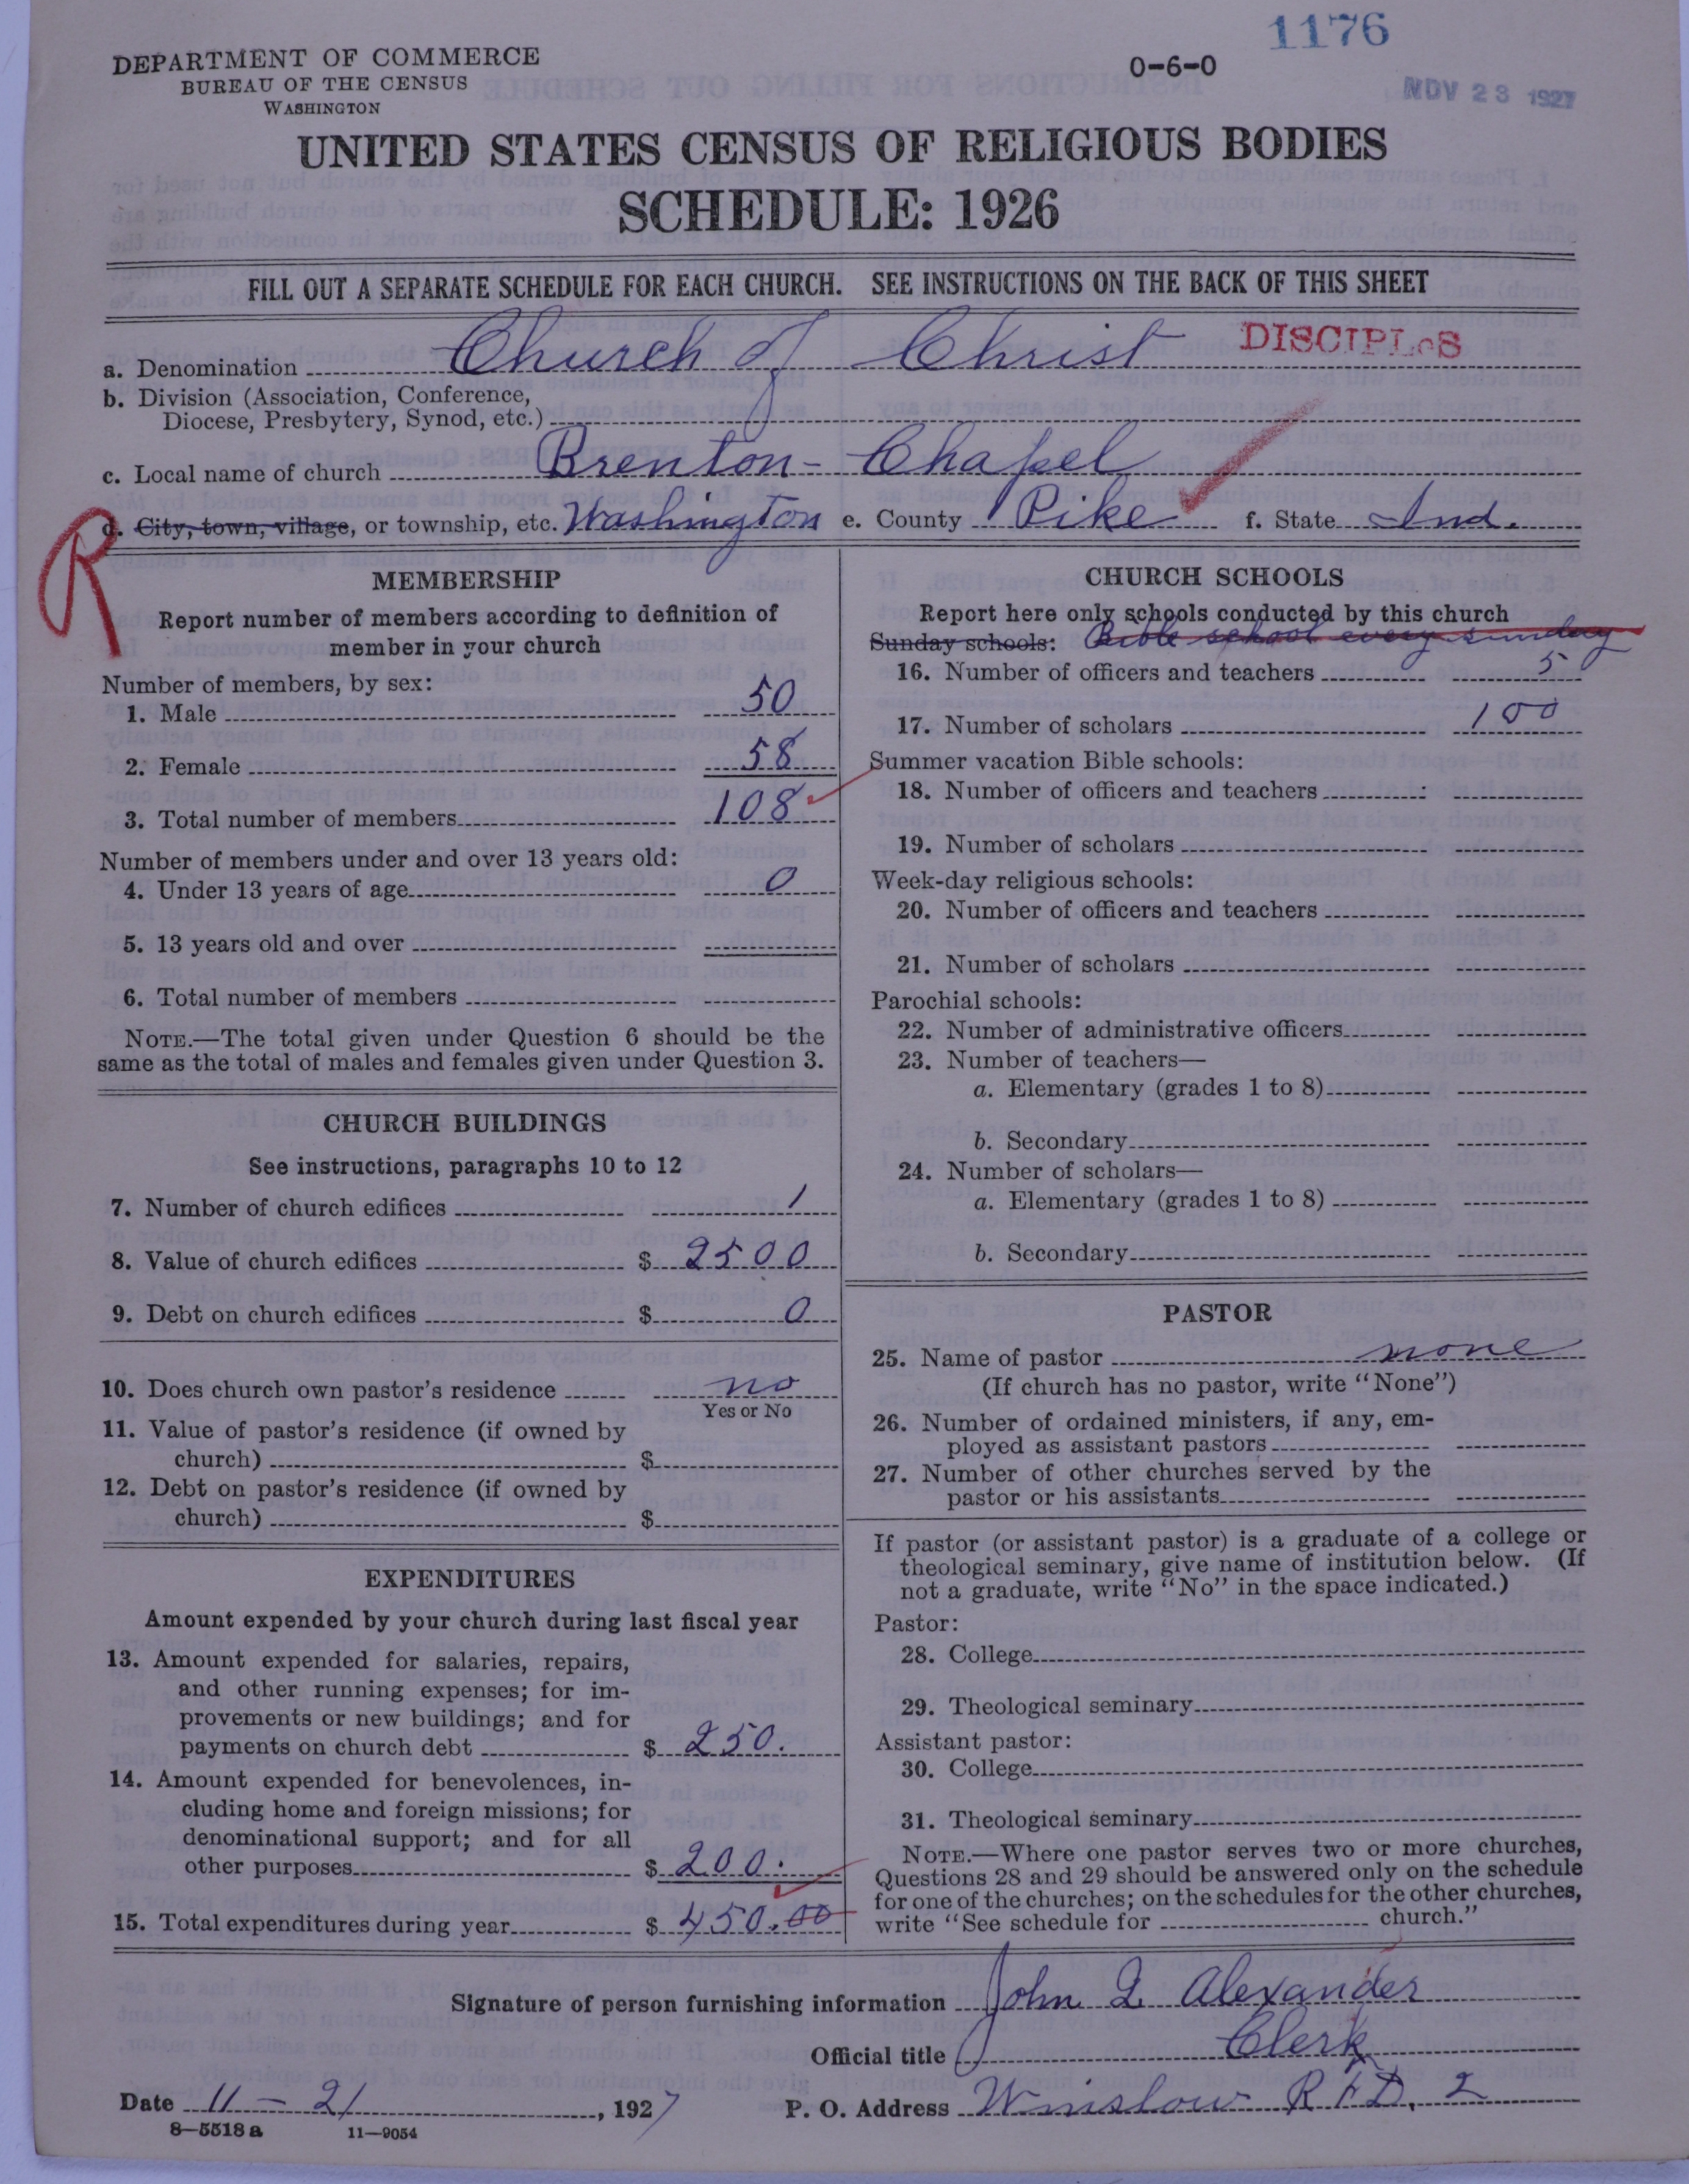 1176
DEPARTMENT OF COMMERCE
BUREAU OF THE CENSUS
WASHINGTON
0-6-0
NOV 23 1927
UNITED STATES CENSUS OF RELIGIOUS BODIES
SCHEDULE: 1926
FILL OUT A SEPARATE SCHEDULE FOR EACH CHURCH. SEE INSTRUCTIONS ON THE BACK OF THIS SHEET
a. Denomination Church of Christ DISCIPLES
b. Division (Association, Conference,
Diocese, Presbytery, Synod, etc.)
c. Local name of church Brenton-Chapel
R
d. City, town, village, or township, etc. Washington e. County Pike f. State Ind.
MEMBERSHIP
Report number of members according to definition of
member in your church
Number of members, by sex:
1. Male 50
2. Female 58
3. Total number of members 108
Number of members under and over 13 years old:
4. Under 13 years of age 0
5. 13 years old and over
6. Total number of members
NOTE.—The total given under Question 6 should be the
same as the total of males and females given under Question 3.
CHURCH BUILDINGS
See instructions, paragraphs 10 to 12
7. Number of church edifices 1
8. Value of church edifices $ 2500
9. Debt on church edifices $ 0
10. Does church own pastor's residence no
Yes or No
11. Value of pastor's residence (if owned by
church) $
12. Debt on pastor's residence (if owned by
church) $
EXPENDITURES
Amount expended by your church during last fiscal year
13. Amount expended for salaries, repairs,
and other running expenses; for im-
provements or new buildings; and for
payments on church debt $ 250.
14. Amount expended for benevolences, in-
cluding home and foreign missions; for
denominational support; and for all
other purposes $ 200.
15. Total expenditures during year $ 450.00
CHURCH SCHOOLS
Report here only schools conducted by this church
Sunday schools: Bible school every sunday
16. Number of officers and teachers 5
17. Number of scholars 100
Summer vacation Bible schools:
18. Number of officers and teachers
19. Number of scholars
Week-day religious schools:
20. Number of officers and teachers
21. Number of scholars
Parochial schools:
22. Number of administrative officers
23. Number of teachers—
a. Elementary (grades 1 to 8)
b. Secondary
24. Number of scholars—
a. Elementary (grades 1 to 8)
b. Secondary
PASTOR
25. Name of pastor none
(If church has no pastor, write "None")
26. Number of ordained ministers, if any, em-
ployed as assistant pastors
27. Number of other churches served by the
pastor or his assistants
If pastor (or assistant pastor) is a graduate of a college or
theological seminary, give name of institution below. (If
not a graduate, write "No" in the space indicated.)
Pastor:
28. College
29. Theological seminary
Assistant pastor:
30. College
31. Theological seminary
NOTE.—Where one pastor serves two or more churches,
Questions 28 and 29 should be answered only on the schedule
for one of the churches; on the schedules for the other churches,
write "See schedule for church."
Signature of person furnishing information John Q. Alexander
Official title Clerk
Date 11-21, 1927 P. O. Address Winslow R F D. 2
8—5518 a 11—9054